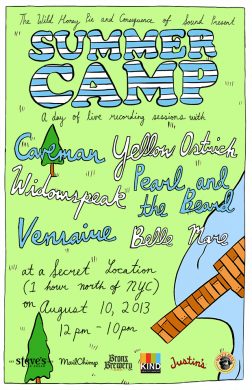 The Wild Honey Pie and Consequence of Sound Present
SUMMER
CAMP
A day of live recording sessions with
Caveman Yellow Ostrich
Widowspeak Pearl and
the Beard
Vensaire Belle Mare
at a Secret Location
(1 hour north of NYC)
on August 10, 2013
12 pm - 10 pm
steve's MailChimp Bronx
Brewery KIND Justin's